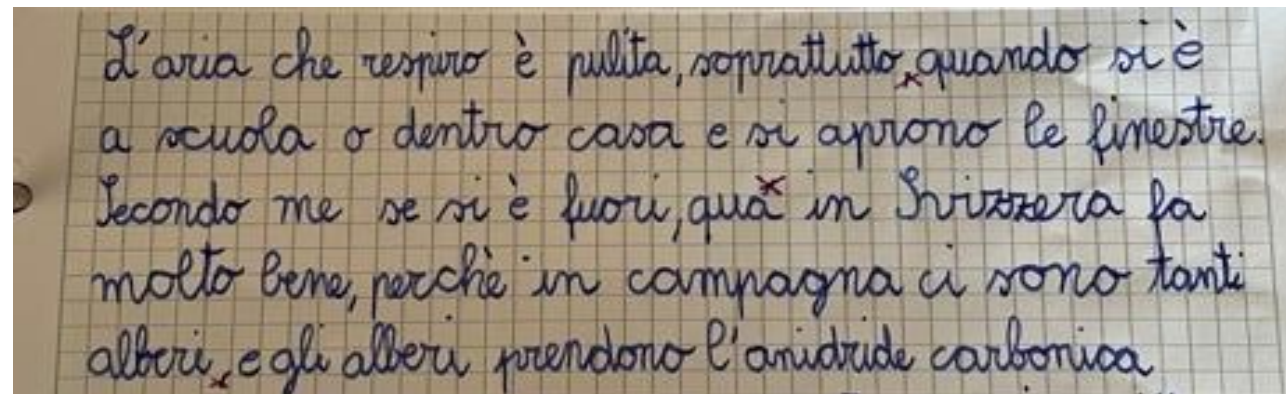 L'aria che respiro è pulita, soprattutto quando si è
a scuola o dentro casa e si aprono le finestre.
Secondo me se si è fuori, qua in Svizzera fa
molto bene, perchè in campagna ci sono tanti
alberi, e gli alberi prendono l'anidride carbonica